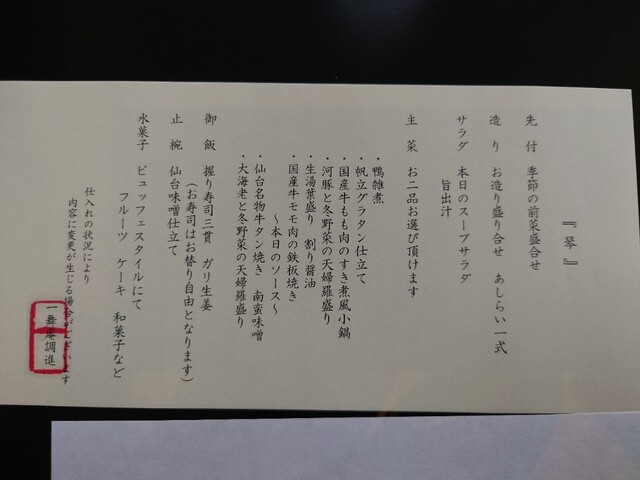 『琴』
先付 季節の前菜盛合せ
造り お造り盛り合せ あしらい一式
サラダ 本日のスープサラダ
旨出汁
主菜 お二品お選び頂けます
・鴨雑煮
・帆立グラタン仕立て
・国産牛もも肉のすき煮風小鍋
・河豚と冬野菜の天婦羅盛り
・生湯葉盛り 割り醤油
・国産牛モモ肉の鉄板焼き
～本日のソース～
・仙台名物牛タン焼き 南蛮味噌
・大海老と冬野菜の天婦羅盛り
御飯 握り寿司三貫 ガリ生姜
(お寿司はお替り自由となります)
止椀 仙台味噌仕立て
水菓子 ビュッフェスタイルにて
フルーツ ケーキ 和菓子など
仕入れの状況により
内容に変更が生じる場合がございます
一舞庵調進